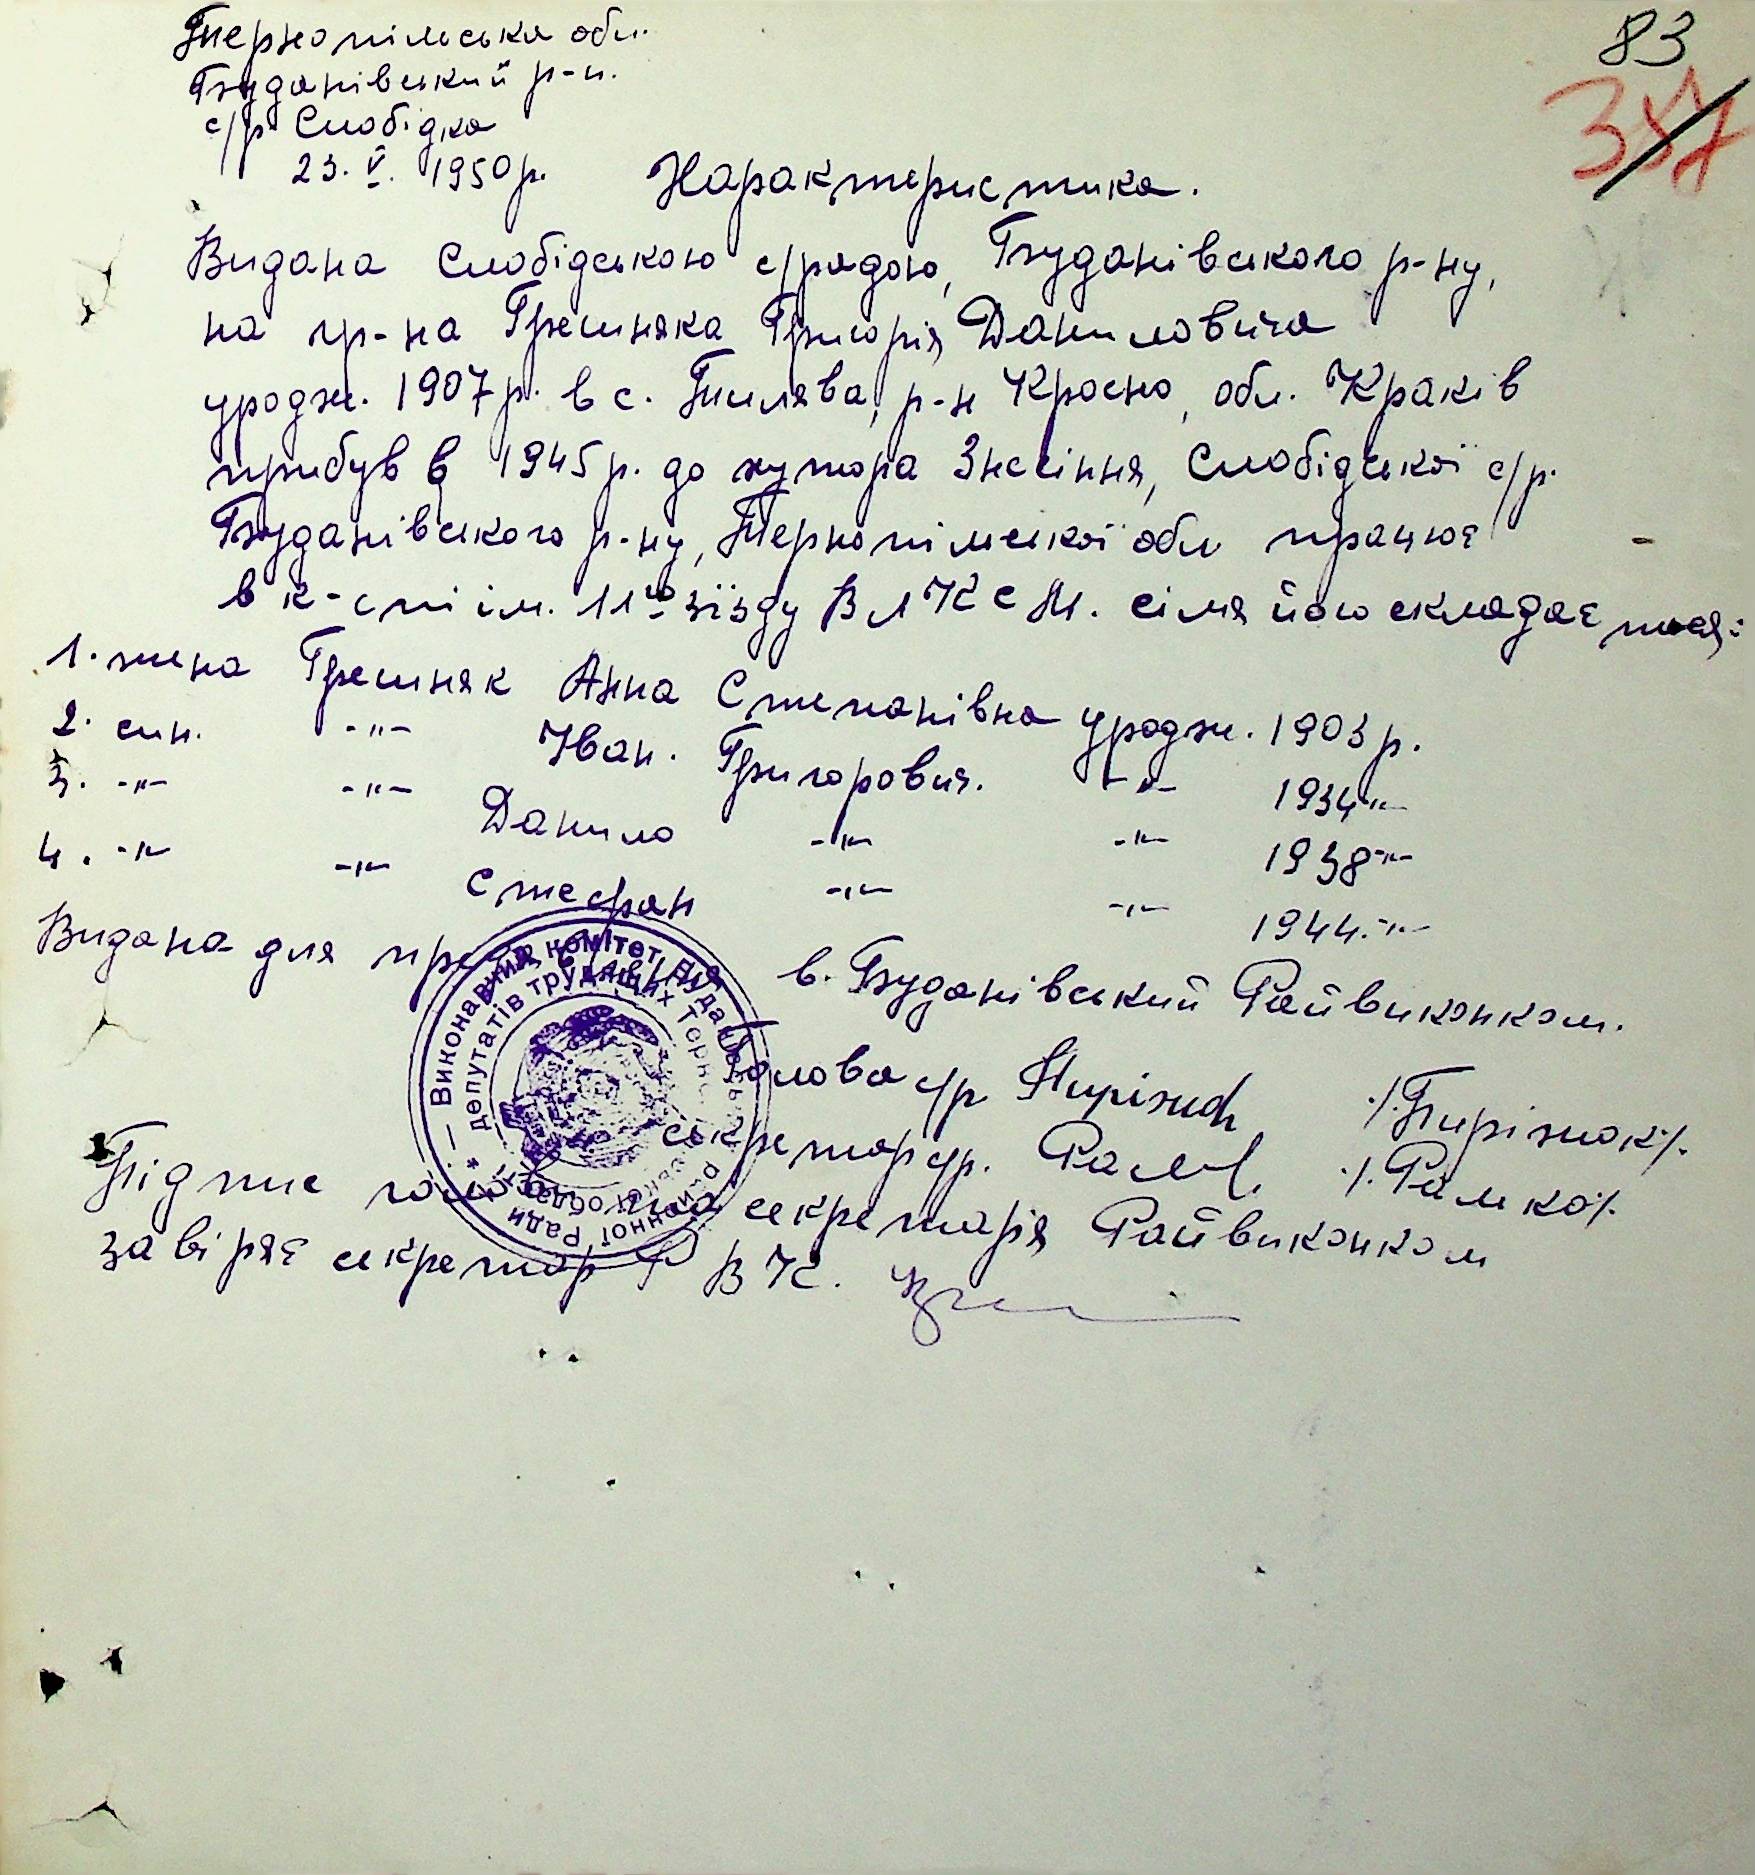 83
357
Тернопільська обл.
Буданівський р-н.
с/р. Слобідка
23. V. 1950 р.
Характеристика.
Видана Слобідською с/радою, Буданівського р-ну,
на гр-на Грешняка Григорія Даниловича
уродж. 1907 р. в с. Тилява, р-н Кросно, обл. Краків
прибув в 1945 р. до хутора Знесіння, Слобідської с/р.
Буданівського р-ну, Тернопільської обл працює
в к-спі ім. 11го зїзду ВЛКСМ. сімя його складається:
1. жена Грешняк Анна Степанівна уродж. 1903 р.
2. син. -"- Іван. Григорович. -"- 1934 -"-
3. -"- -"- Данило -"- -"- 1938 -"-
4. -"- -"- Стефан -"- -"- 1944. -"-
Видана для предявлення в. Буданівський Райвиконком.
Голова с/р /.Пиріжок/.
секретар с/р. /.Рамко/.
Підпис голови та секретаря Райвиконком
завіряє секретар РВК.
Виконавчий комітет Буданівської районної Ради
депутатів трудящих Тернопільської області